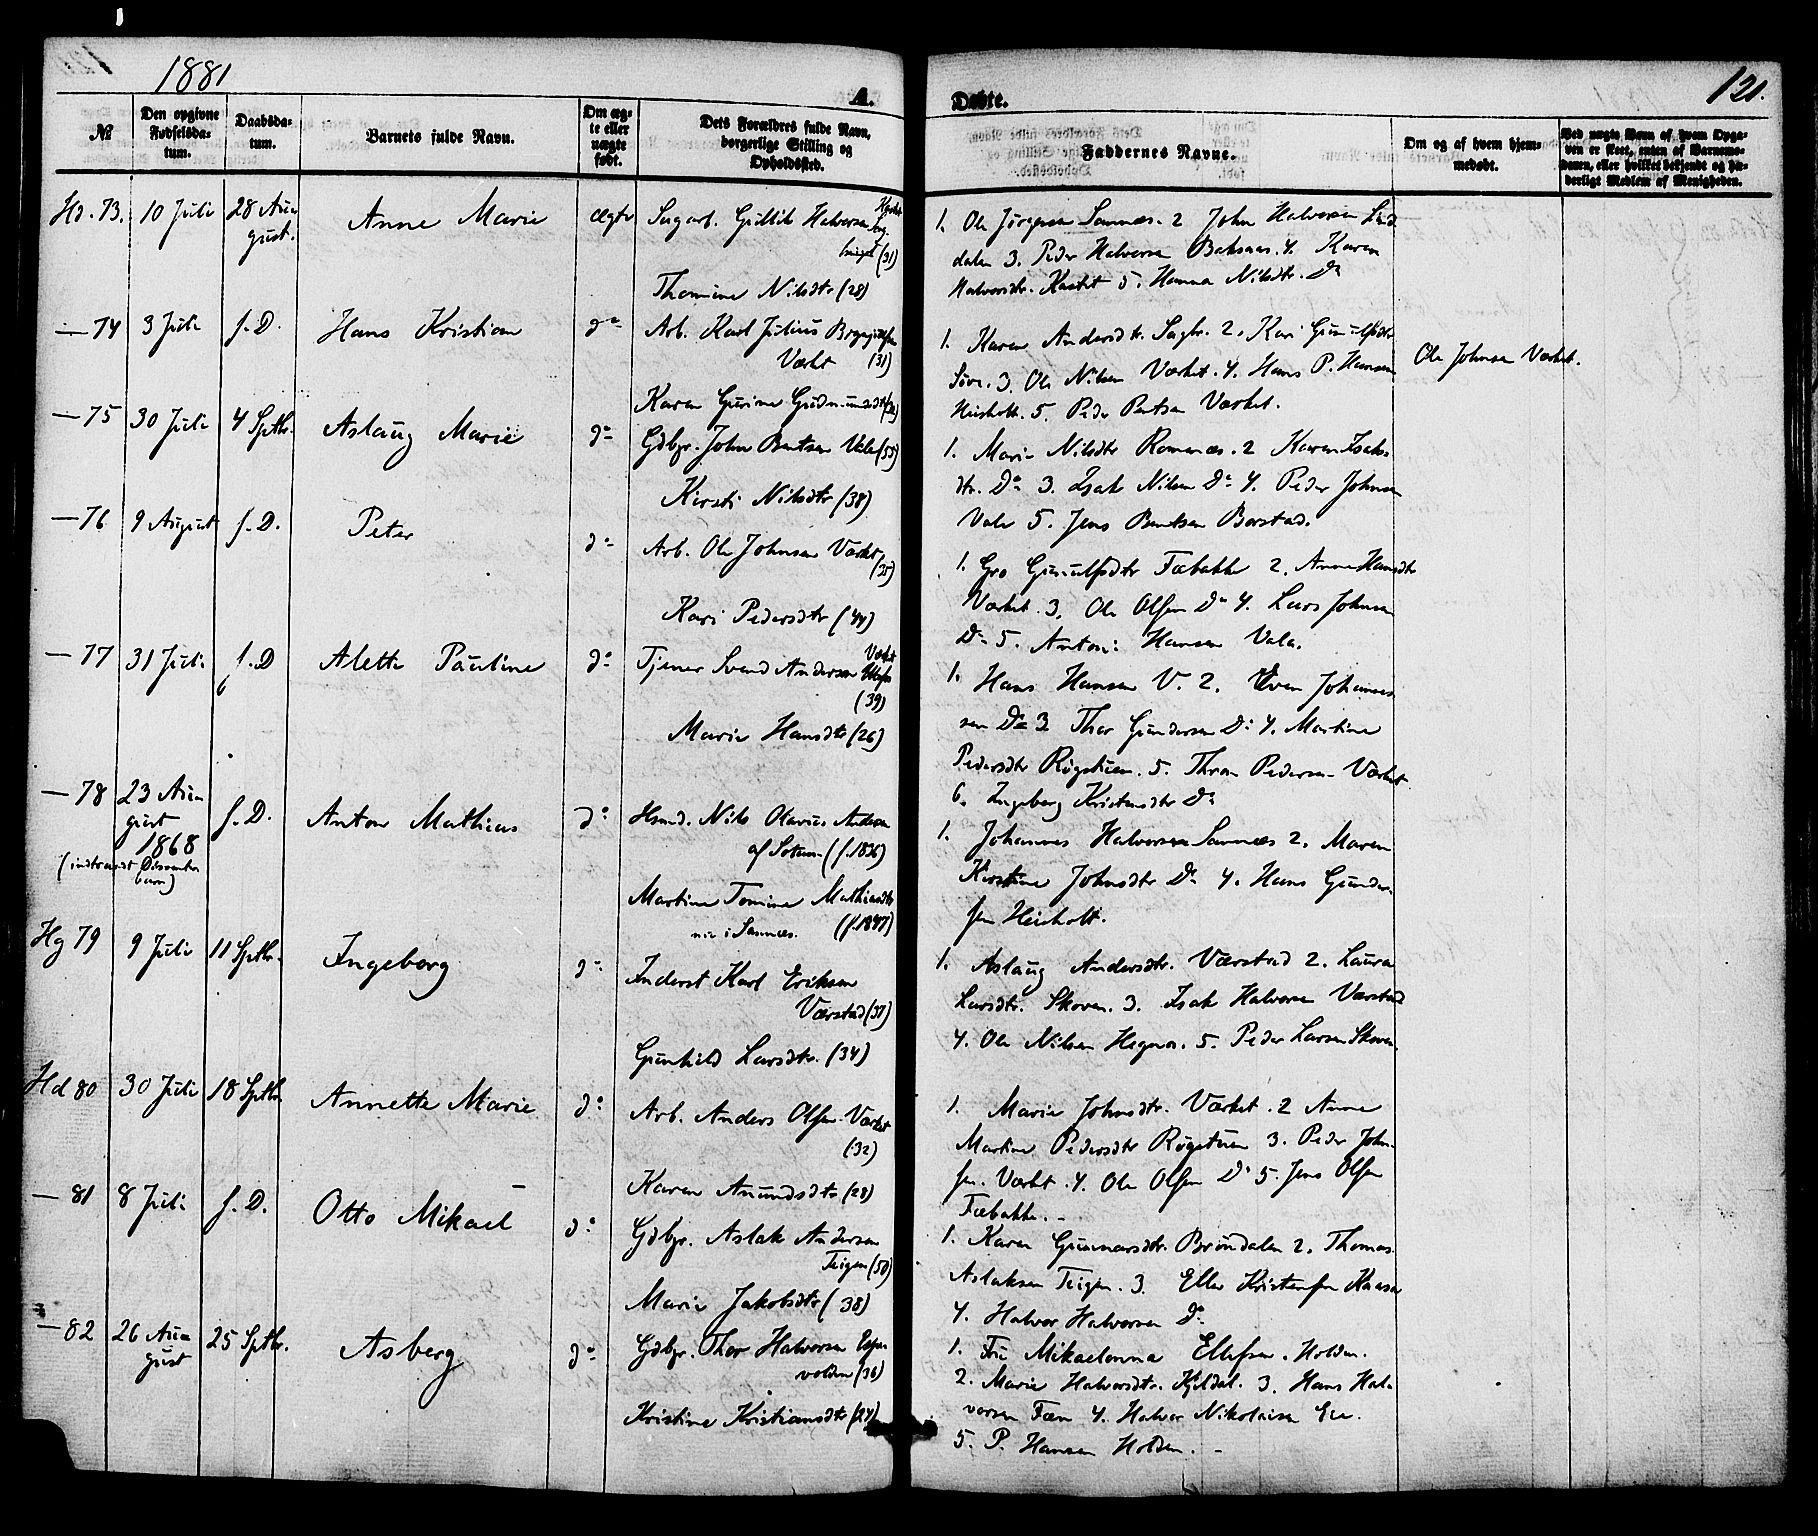 1881
A.
Døbte.
121.
№
Den opgivne Fødselsdatum.
Daabsdatum.
Barnets fulde Navn.
Om ægte eller uægte født.
Dets Forældres fulde Navn, borgerlige Stilling og Opholdssted.
Faddernes Navne.
Om og af hvem hjemmedøbt.
Ved uægte Børn af hvem Opgaven er skeet, enten af Barnemoderen, eller hvilket bekjendt og hæderligt Medlem af Menigheden.
Hd. 73. 10 Juli 28 August. Anne Marie ægte
Sagarb. Gullik Halvorsen (31)
Thomine Nilsdtr (28)
1. Ole Jørgensen Sannæs. 2 John Halvorsen Lind
dalen 3. Peder Halvorsen Baksaas. 4. Karen
Halvorsdtr. Kastet 5. Hanna Nilsdtr. Do
— 74 3 Juli f. D. Hans Kristian do
Arb. Karl Julius Brynjulfsen
Værket (31)
Karen Gurine Gudmundsdtr
1. Karen Andersdtr. Sagbr. 2. Kari Gunulfsdtr
Sove. 3. Ole Nilsen Værket. 4. Hans P. Hansen
Heisholt. 5. Peder Bentsen Værket.
Ole Johnsen Værket.
— 75 30 Juli 4 Sptbr. Aslaug Marie do
Gdbgr. John Bentsen Vale (53)
Kirsti Nilsdtr (38)
1. Marie Nilsdtr Romenæs. 2 Karen Isaks-
dtr. Do 3. Isak Nilsen Do 4. Peder Johnsen
Vale 5. Jens Bentsen Borstad.
— 76 9 August f. D. Peter do
Arb. Ole Johnsen Værket
(35)
Kari Pedersdtr (44)
1. Gro Gunulfsdtr Fæbakke 2. Anne Hansdtr
Værket. 3. Ole Olsen Do 4. Lars Johnsen
Do 5. Anton: Hansen Vala.
— 77 31 Juli f. D Alette Pauline do
Tjener Svend Andersen
(39)
Marie Hansdtr (26)
1. Hans Hansen V. 2. Even Johannes
sen Do 3 Thor Gundersen Do 4. Martine
Pedersdtr Røgstuen. 5. Thron Pedersen Værket
6. Ingeborg Kristensdtr Do
— 78 23 August 1868 f. D. Anton Mathias do
(indtraadt Dissenter barn)
Hsmd. Nils Olavus Andersen
af Solum (f. 1836)
Martine Tomine Mathiasdtr
nu i Sannæs. (f. 1847)
1. Johannes Halvorsen Sannæs 2. Maren
Kirstine Johnsdtr Do 4. Hans Gunder-
sen Heisholt.
Hg 79 9 Juli 11 Sptbr. Ingeborg do
Inderst Karl Eriksen
Værstad (37)
Gunhild Larsdtr. (34)
1. Aslaug Andersdtr. Værstad 2. Laura
Larsdtr. Skoven. 3. Isak Halvorsen Værstad
4. Ole Nilsen Hegna. 5. Peder Larsen Skoven.
Hd 80 30 Juli 18 Sptbr. Annette Marie do
Arb. Anders Olsen Værket
(32)
Karen Amundsdtr (28)
1. Marie Johnsdtr. Værket. 2 Anne
Martine Pedersdtr Røgstuen 3. Peder John-
sen Værket. 4. Ole Olsen Do 5. Jens Olsen
Fæbakke.
— 81 8 Juli f. D. Otto Mikael do
Gdbgr. Aslak Andersen
Teigen (50)
Marie Jakobsdtr (38)
1. Karen Gunnarsdtr. Brøndalen 2. Thomas
Aslaksen Teigen. 3. Ellef Kristensen Kaasa
4. Halvor Halvorsen Do
— 82 26 August 25 Sptbr. Asberg do
Gdbgr. Thor Halvorsen Espe-
volden (36)
Kristine Kristiansdtr (27)
1. Fru Mikaelonna Ellefsen. Holden.
2. Marie Halvorsdtr. Kjeldal. 3. Hans Hal-
vorsen Fæn 4. Halvor Nikolaisen Eie.
5. P. Hansen Holden.